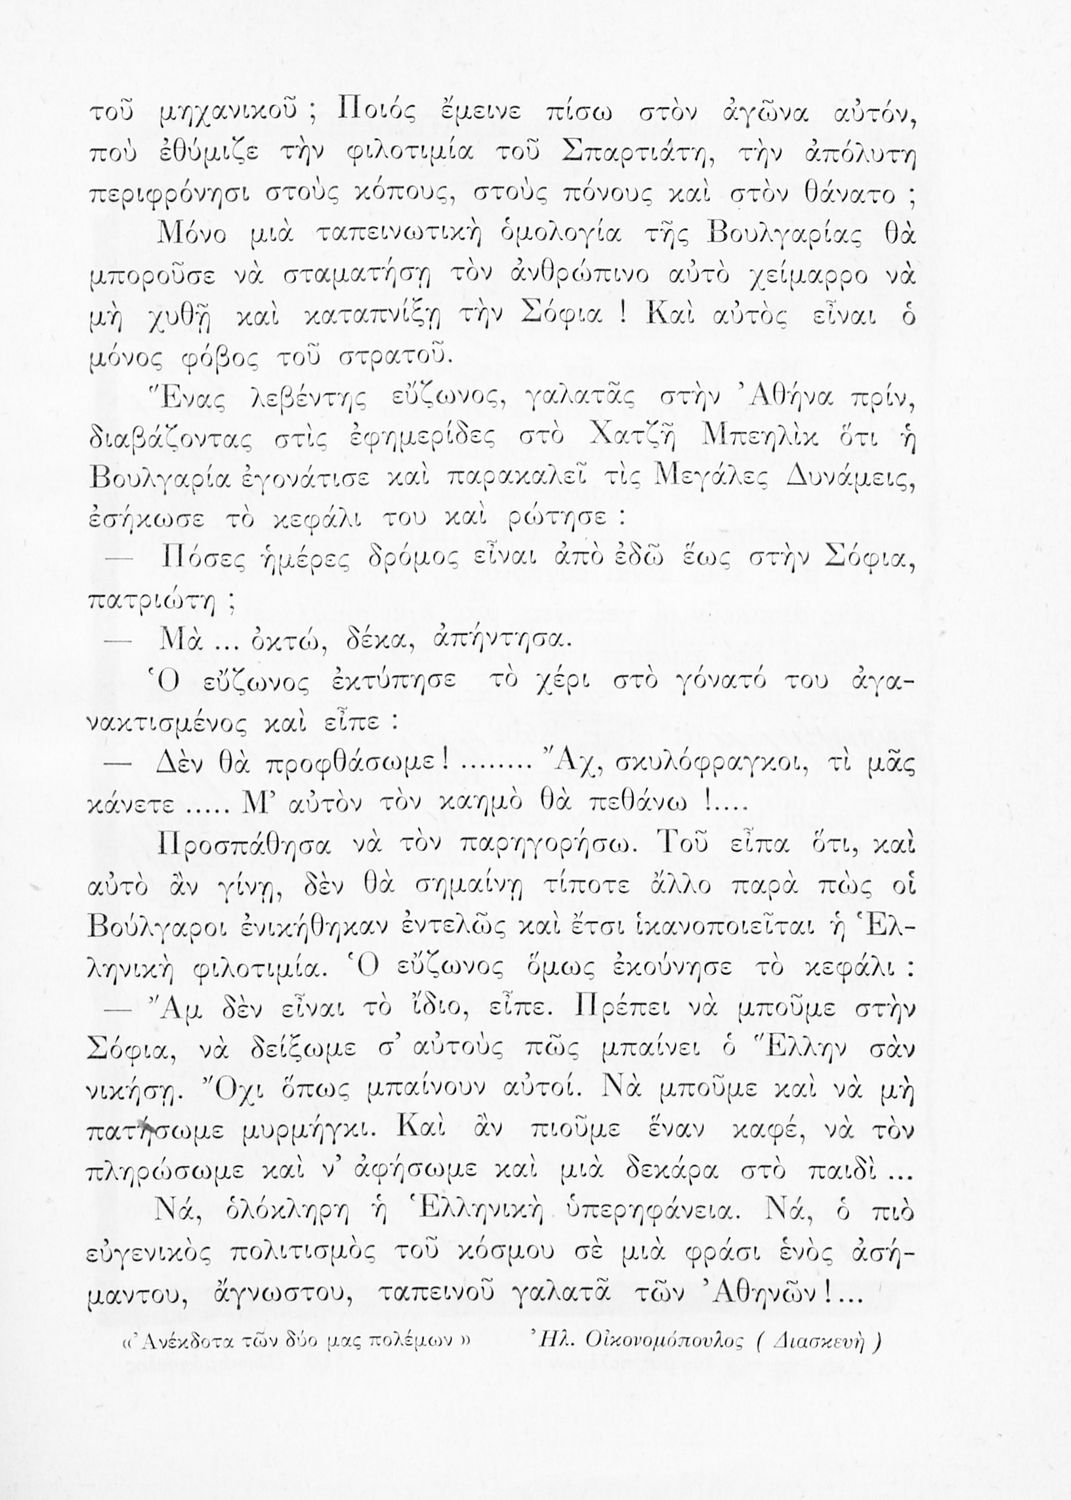 τοῦ μηχανικοῦ ; Ποιός ἔμεινε πίσω στὸν ἀγῶνα αὐτόν,
ποὺ ἐθύμιζε τὴν φιλοτιμία τοῦ Σπαρτιάτη, τὴν ἀπόλυτη
περιφρόνησι στοὺς κόπους, στοὺς πόνους καὶ στὸν θάνατο ;
Μόνο μιὰ ταπεινωτικὴ ὁμολογία τῆς Βουλγαρίας θὰ
μποροῦσε νὰ σταματήσῃ τὸν ἀνθρώπινο αὐτὸ χείμαρρο νὰ
μὴ χυθῇ καὶ καταπνίξῃ τὴν Σόφια ! Καὶ αὐτὸς εἶναι ὁ
μόνος φόβος τοῦ στρατοῦ.
Ἕνας λεβέντης εὔζωνος, γαλατᾶς στὴν Ἀθήνα πρίν,
διαβάζοντας στὶς ἐφημερίδες στὸ Χατζῆ Μπεηλὶκ ὅτι ἡ
Βουλγαρία ἐγονάτισε καὶ παρακαλεῖ τὶς Μεγάλες Δυνάμεις,
ἐσήκωσε τὸ κεφάλι του καὶ ρώτησε :
— Πόσες ἡμέρες δρόμος εἶναι ἀπὸ ἐδῶ ἕως στὴν Σόφια,
πατριώτη ;
— Μὰ ... ὀκτώ, δέκα, ἀπήντησα.
Ὁ εὔζωνος ἐκτύπησε τὸ χέρι στὸ γόνατό του ἀγα-
νακτισμένος καὶ εἶπε :
— Δὲν θὰ προφθάσωμε ! ........ Ἄχ, σκυλόφραγκοι, τὶ μᾶς
κάνετε ..... Μ' αὐτὸν τὸν καημὸ θὰ πεθάνω !....
Προσπάθησα νὰ τὸν παρηγορήσω. Τοῦ εἶπα ὅτι, καὶ
αὐτὸ ἂν γίνῃ, δὲν θὰ σημαίνῃ τίποτε ἄλλο παρὰ πὼς οἱ
Βούλγαροι ἐνικήθηκαν ἐντελῶς καὶ ἔτσι ἱκανοποιεῖται ἡ Ἑλ-
ληνικὴ φιλοτιμία. Ὁ εὔζωνος ὅμως ἐκούνησε τὸ κεφάλι :
— Ἄμ δὲν εἶναι τὸ ἴδιο, εἶπε. Πρέπει νὰ μποῦμε στὴν
Σόφια, νὰ δείξωμε σ' αὐτοὺς πῶς μπαίνει ὁ Ἕλλην σὰν
νικήσῃ. Ὄχι ὅπως μπαίνουν αὐτοί. Νὰ μποῦμε καὶ νὰ μὴ
πατήσωμε μυρμήγκι. Καὶ ἂν πιοῦμε ἕναν καφέ, νὰ τὸν
πληρώσωμε καὶ ν' ἀφήσωμε καὶ μιὰ δεκάρα στὸ παιδὶ ...
Νά, ὁλόκληρη ἡ Ἑλληνικὴ ὑπερηφάνεια. Νά, ὁ πιὸ
εὐγενικὸς πολιτισμὸς τοῦ κόσμου σὲ μιὰ φράσι ἑνὸς ἀσή-
μαντου, ἄγνωστου, ταπεινοῦ γαλατᾶ τῶν Ἀθηνῶν !...
«Ἀνέκδοτα τῶν δύο μας πολέμων » Ἠλ. Οἰκονομόπουλος ( Διασκευὴ )